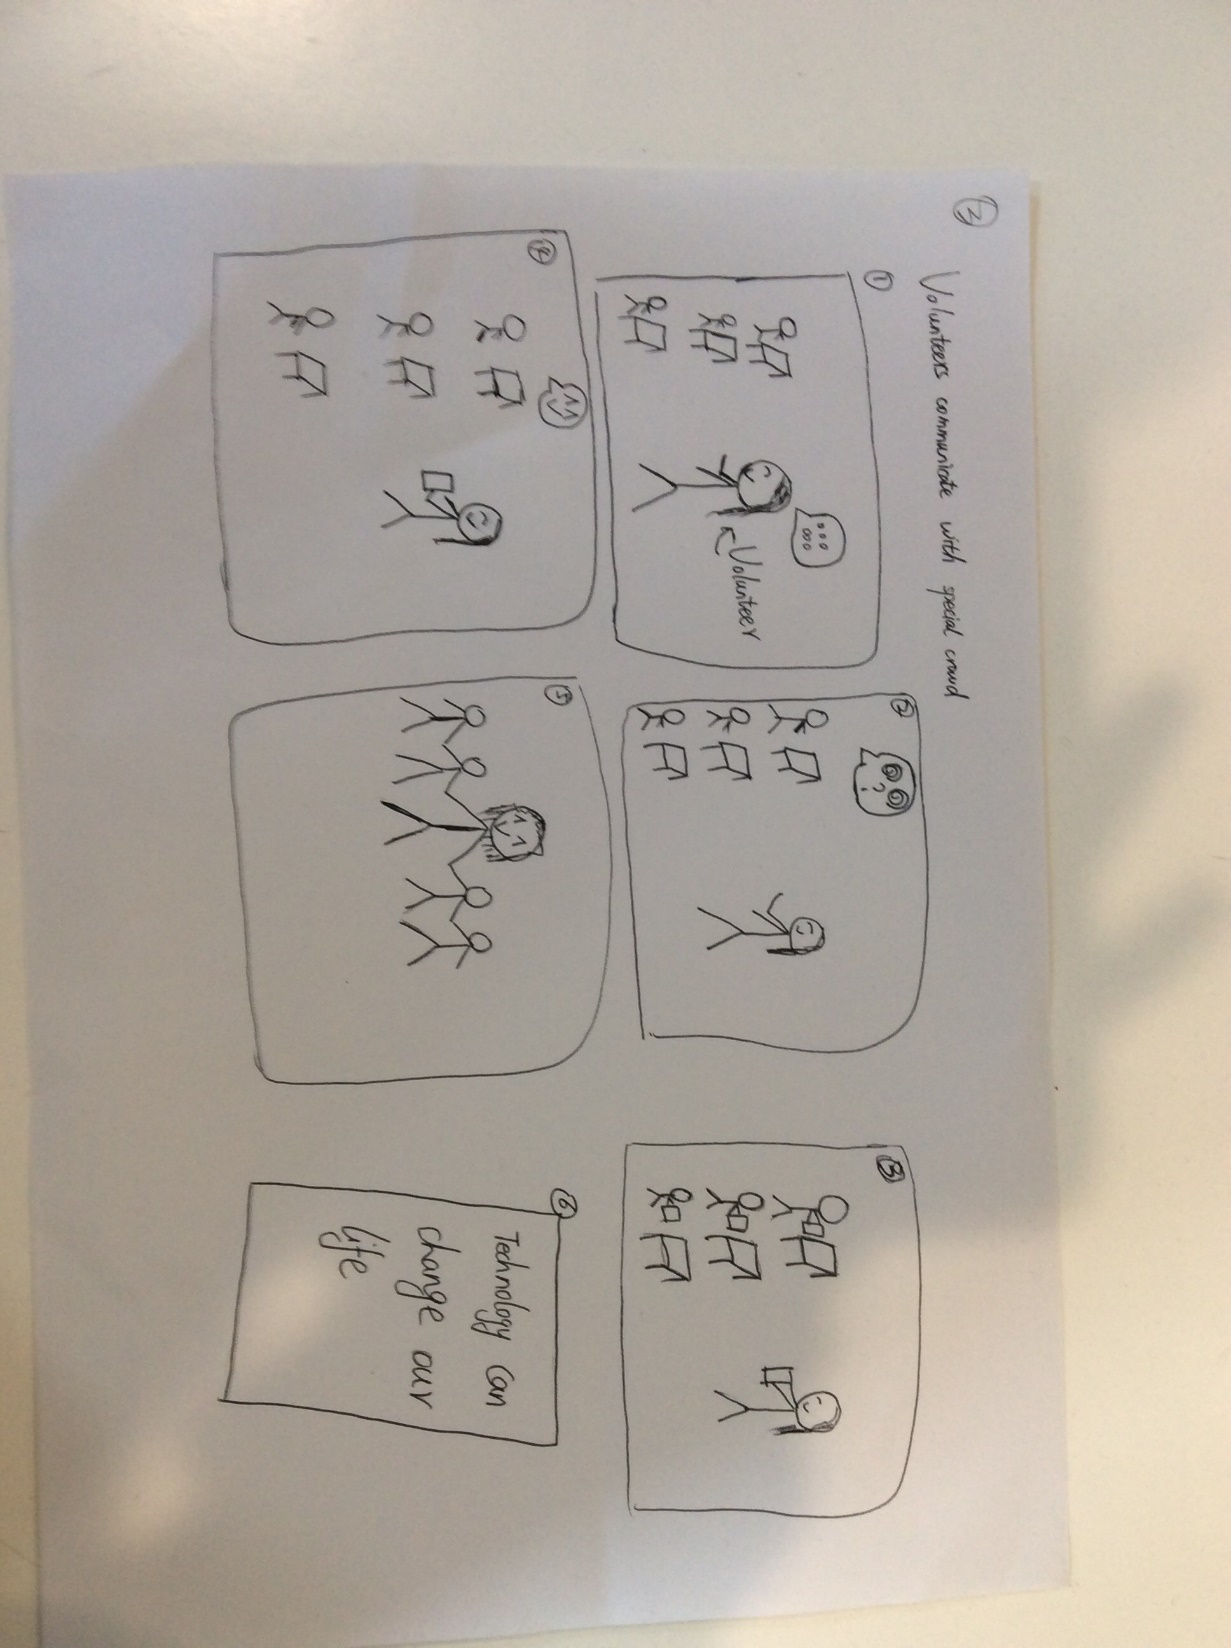 ②
Volunteers communicate with special crowd
①
Volunteer
②
?
③
④
⑤
⑥
Technology can
change our
life